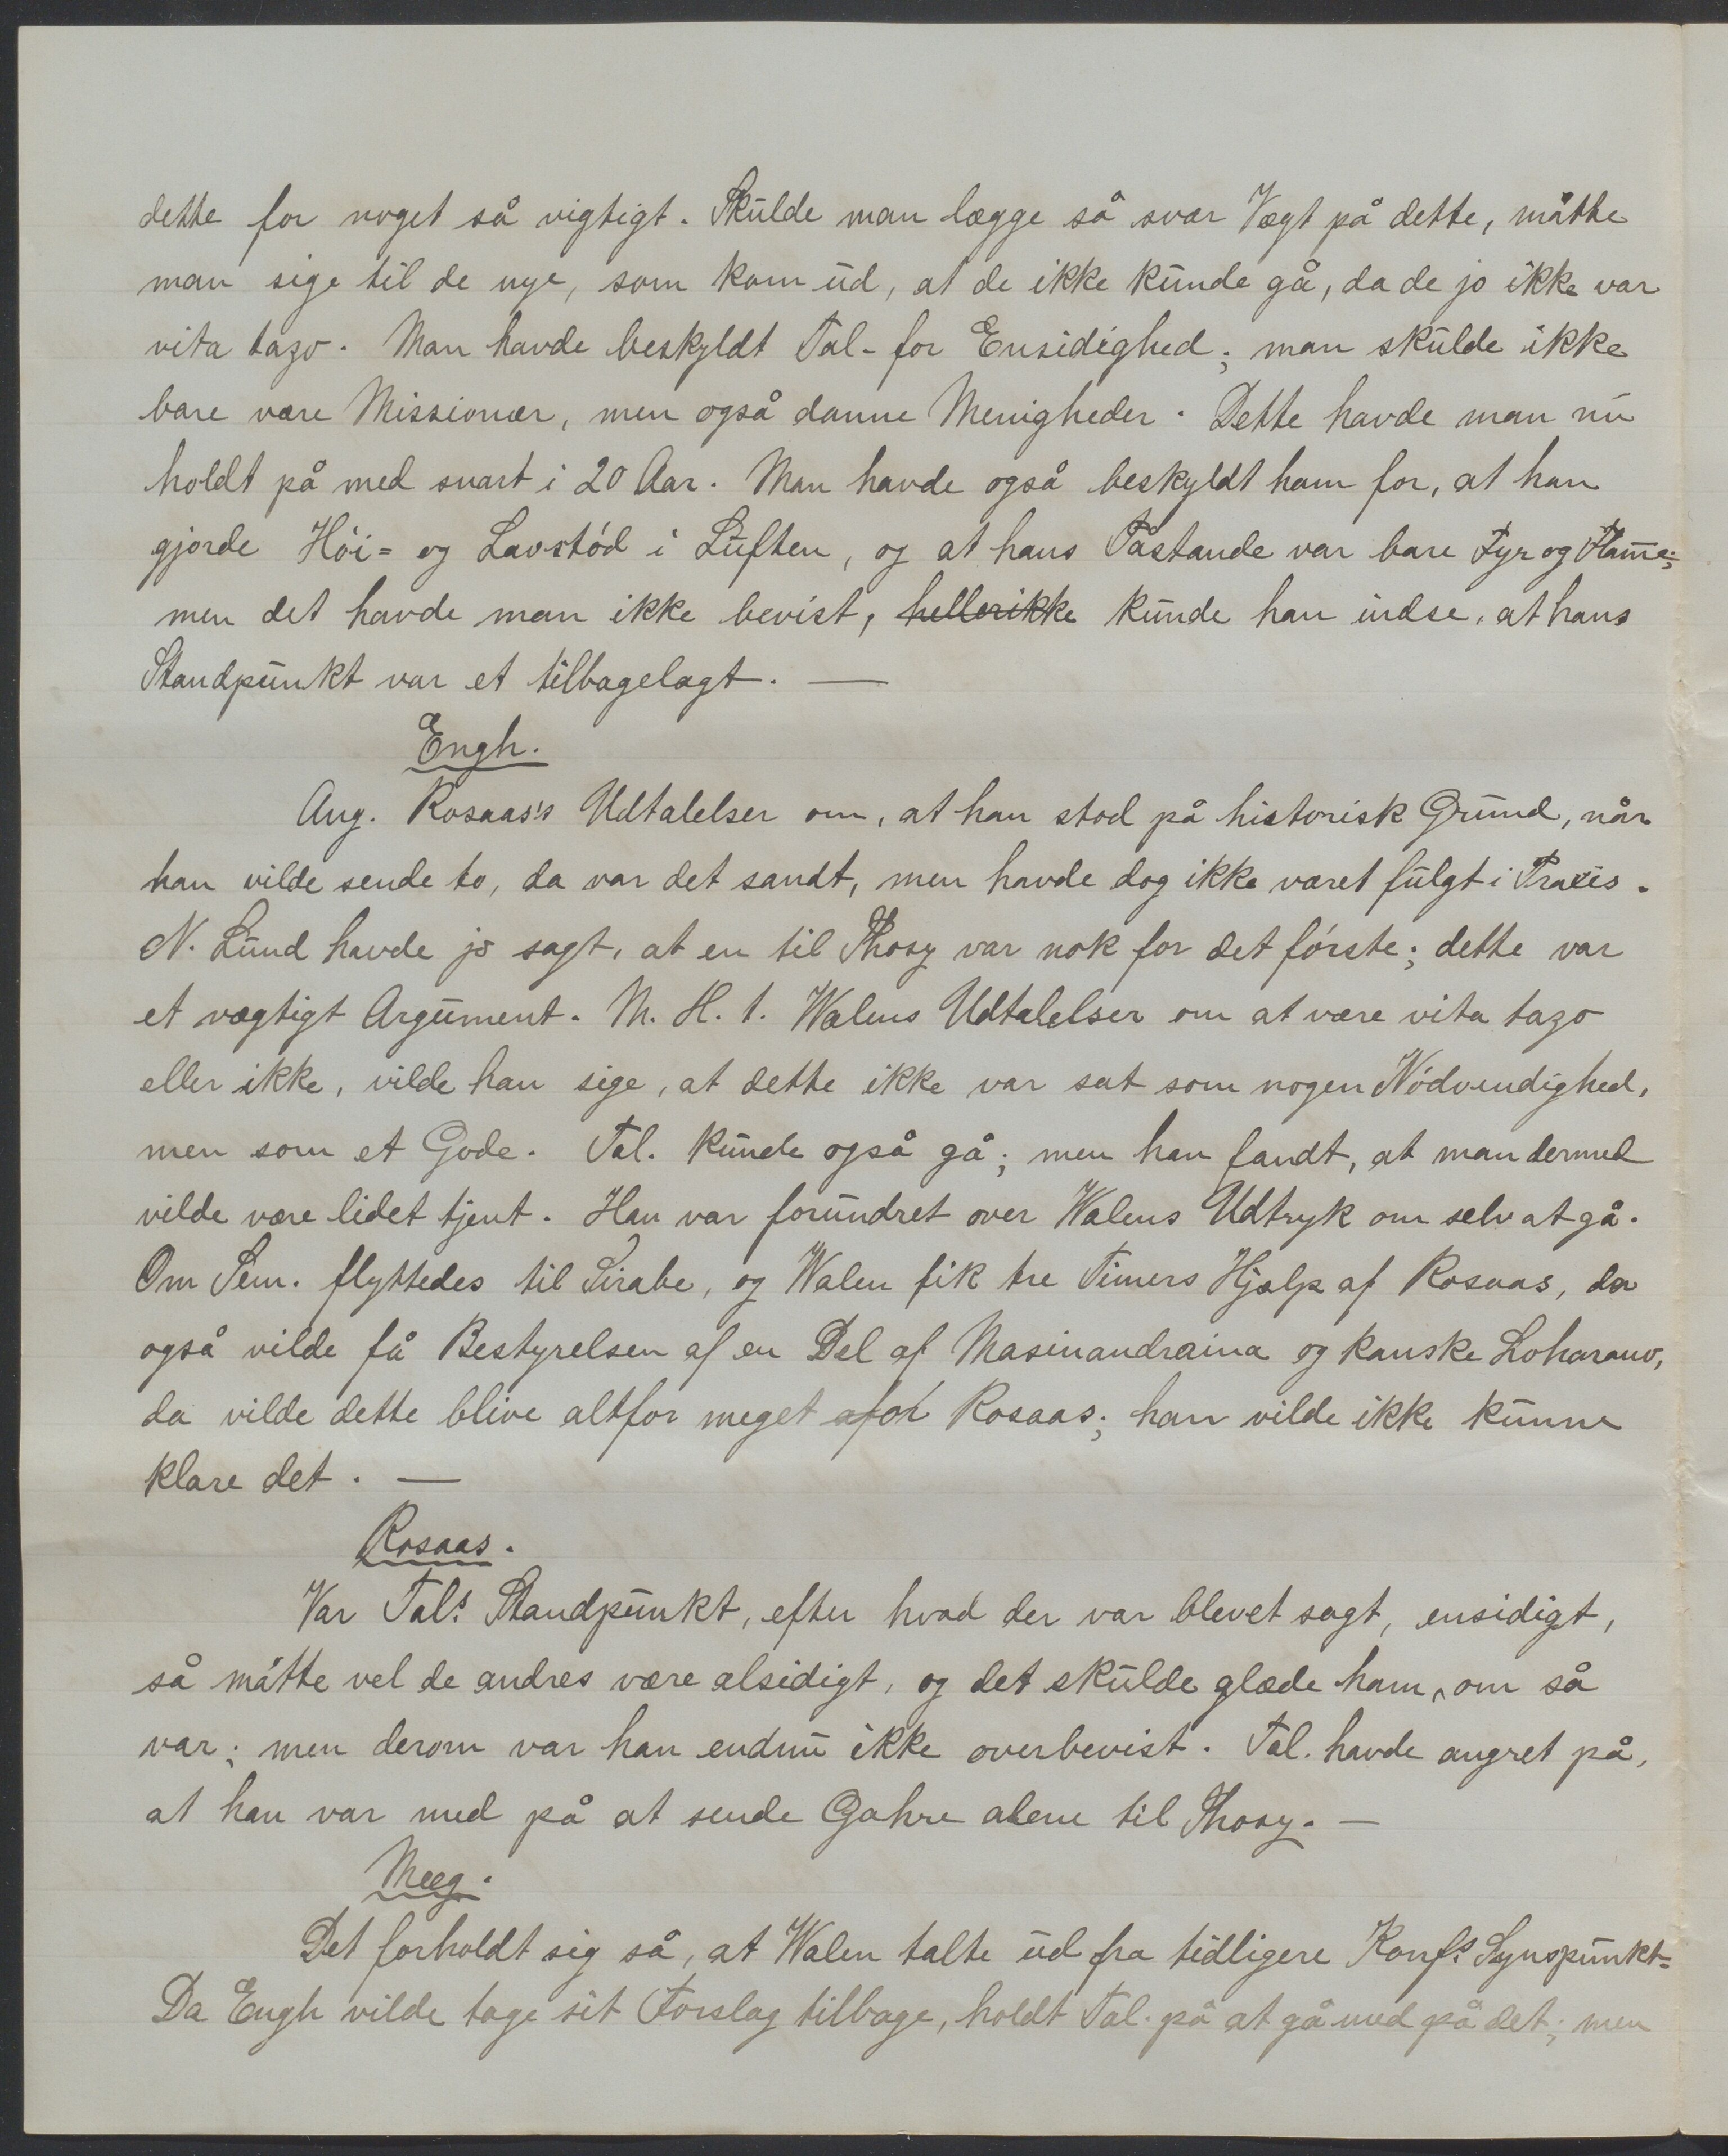 dette for noget så vigtigt. Skulde man lægge så svær Vægt på dette, måtte
man sige til de nye, som kom ud, at de ikke kunde gå, da de jo ikke var
vita tazo. Man havde beskyldt Tal. for Ensidighed; man skulde ikke
bare være Missionær, men også danne Menigheder. Dette havde man nu
holdt på med snart i 20 Aar. Man havde også beskyldt ham for, at han
gjorde Höi= og Lavstöd i Luften, og at hans Påstande var bare Fyr og Flam̅e;
men det havde man ikke bevist, hellerikke kunde han indse, at hans
Standpunkt var et tilbagelagt. —
Engh.
Ang. Rosaas's Udtalelser om, at han stod på historisk Grund, når
han vilde sende to, da var det sandt, men havde dog ikke været fulgt i Praxis.
N. Lund havde jo sagt, at en til Ihosy var nok for det förste; dette var
et vægtigt Argument. M. H. t. Walens Udtalelser om at være vita tazo
eller ikke, vilde han sige, at dette ikke var sat som nogen Nödvendighed,
men som et Gode. Tal. kunde også gå; men han fandt, at man dermed
vilde være lidet tjent. Han var forundret over Walens Udtryk om selv at gå.
Om Sem. flyttedes til Sirabe, og Walen fik tre Timers Hjælp af Rosaas, da
også vilde få Bestyrelsen af en Del af Masinandraina og kanske Loharano,
da vilde dette blive altfor meget for Rosaas; han vilde ikke kunne
klare det. —
Rosaas.
Var Tals Standpunkt, efter hvad der var blevet sagt, ensidigt,
så måtte vel de andres være alsidigt, og det skulde glæde ham, om så
var; men derom var han endnu ikke overbevist. Tal. havde angret på,
at han var med på at sende Gahre alene til Ihosy. —
Meeg.
Det forholdt sig så, at Walen talte ud fra tidligere Konfs Synspunkt=
Da Engh vilde tage sit Forslag tilbage, holdt Tal. på at gå med på det; men